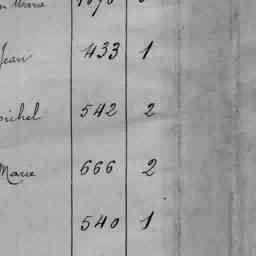 Marie
Jean 433 1
542 2
Marie 666 2
540 1